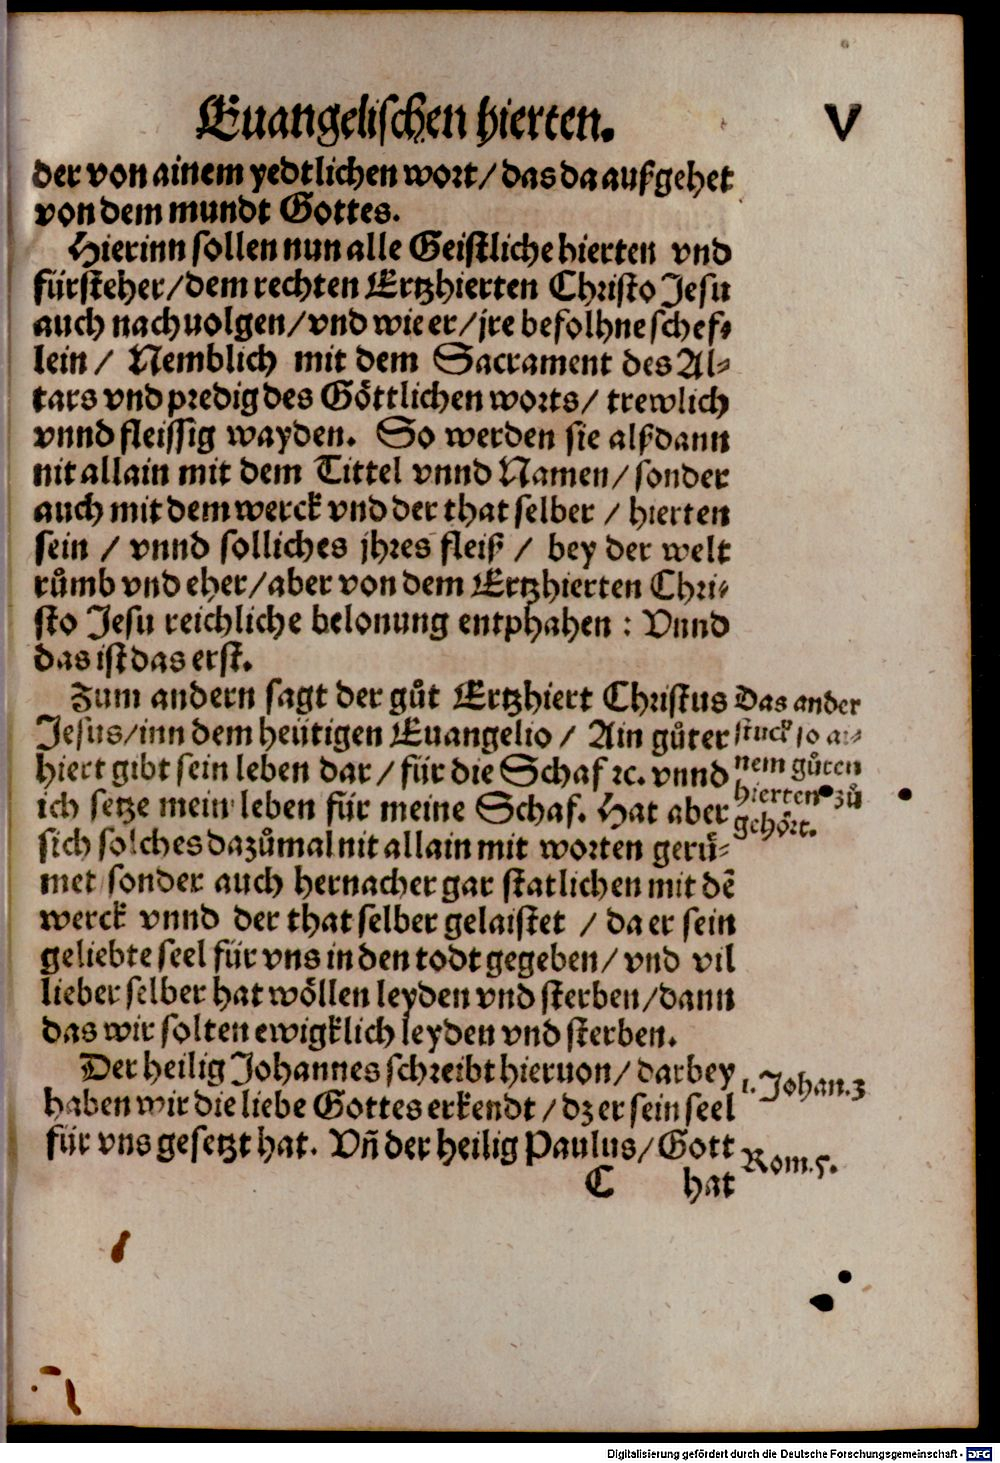 Euangelischen hierten. V
der von ainem yedtlichen wort/ das da außgehet
von dem mundt Gottes.
Hierinn sollen nun alle Geistliche hierten vnd
fürsteher/dem rechten Ertzhierten Christo Jesu
auch nachuolgen/vnd wie er/jre befolhne schef⸗
lein / Nemblich mit dem Sacrament des Al⸗
tars vnd predig des Göttlichen worts/ trewlich
vnnd fleissig wayden. So werden sie alßdann
nit allain mit dem Tittel vnnd Namen/ sonder
auch mit dem werck vnd der that selber / hierten
sein / vnnd solliches jhres fleiß / bey der welt
růmb vnd eher/aber von dem Ertzhierten Chri⸗
sto Jesu reichliche belonung entphahen : Vnnd
das ist das erst.
Zum andern sagt der gůt Ertzhiert Christus
Jesus/inn dem heütigen Euangelio / Ain gůter
hiert gibt sein leben dar/ für die Schaf ꝛc. vnnd
ich setze mein leben für meine Schaf. Hat aber
sich solches dazůmal nit allain mit worten gerů⸗
met sonder auch hernacher gar statlichen mit dē
werck vnnd der that selber gelaistet / da er sein
geliebte seel für vns in den todt gegeben/ vnd vil
lieber selber hat wöllen leyden vnd sterben/dann
das wir solten ewigklich leyden vnd sterben.
Das ander
stuck so ai⸗
nem gůten
hierten zů
gehört.
Der heilig Johannes schreibt hieruon/ darbey
haben wir die liebe Gottes erkendt / dz er sein seel
für vns gesetzt hat. Vñ der heilig Paulus/ Gott
1. Johan.3
Rom.5.
C hat
Digitalisierung gefördert durch die Deutsche Forschungsgemeinschaft - DFG